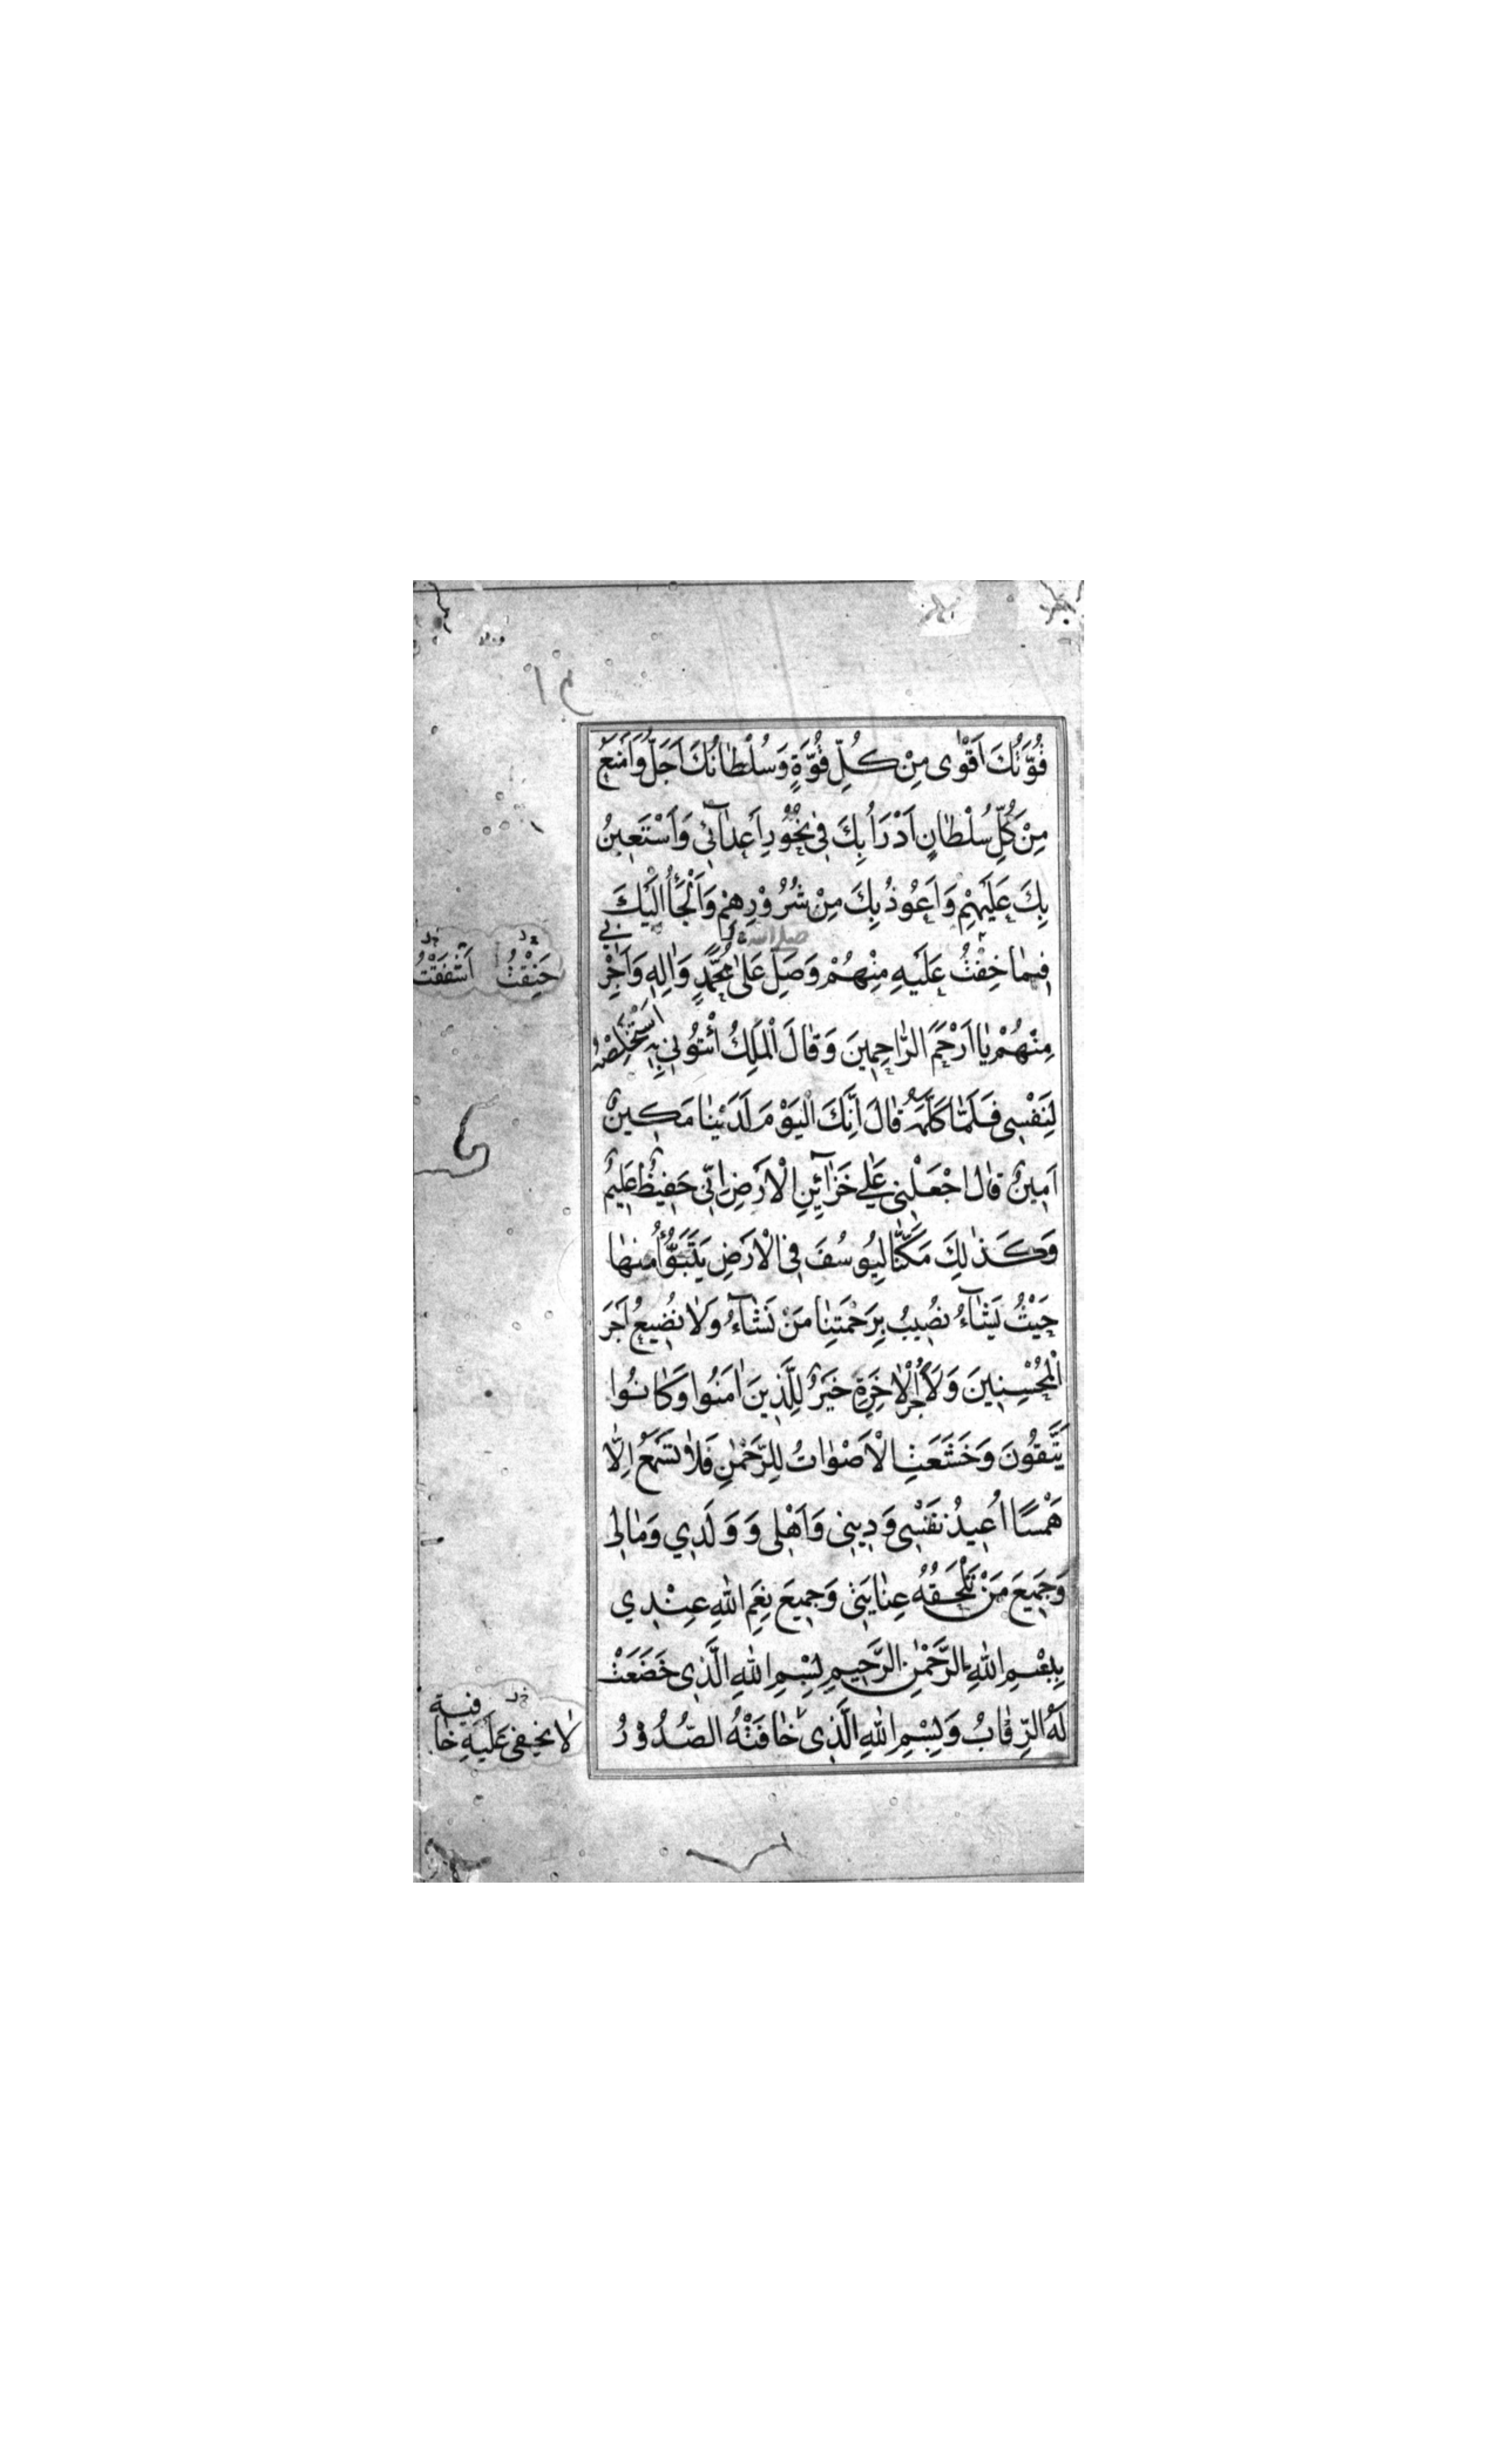 قُوَّتُكَ اَقْوٰى مِنْ كُلِّ قُوَّةٍ وَسُلْطَانُكَ اَجَلُّ وَاَمْنَعُ
مِنْ كُلِّ سُلْطَانٍ اَدْرَأُ بِكَ فِى نُحُوْرِ اَعْدٰائِى وَاَسْتَعِينُ
بِكَ عَلَيْهِمْ وَاَعُوذُ بِكَ مِنْ شُرُوْرِهِمْ وَاَلْجَأُ اِلَيْكَ
صلى الله
فِيمٰا خِفْتُ عَلَيْهِ مِنْهُمْ وَصَلِّ عَلىٰ مُحَمَّدٍ وَاٰلِهِ وَاَجِرْنِى
حَنِقْتُ اَشْفَقْتُ
مِنْهُمْ يٰا اَرْحَمَ الرّٰاحِمِينَ وَقٰالَ الْمَلِكُ ائْتُونِى بِهِ اَسْتَخْلِصْهُ
لِنَفْسِى فَلَمّٰا كَلَّمَهُ قٰالَ اِنَّكَ الْيَوْمَ لَدَيْنٰا مَكِينٌ
اَمِينٌ قٰالَ اجْعَلْنِى عَلٰى خَزٰائِنِ الْاَرْضِ اِنِّى حَفِيظٌ عَلِيمٌ
وَكَذٰلِكَ مَكَّنّٰا لِيُوسُفَ فِى الْاَرْضِ يَتَبَوَّأُ مِنْهٰا
حَيْثُ يَشٰاءُ نُصِيبُ بِرَحْمَتِنٰا مَنْ نَشٰاءُ وَلٰا نُضِيعُ اَجْرَ
الْمُحْسِنِينَ وَلَاَجْرُ الْاٰخِرَةِ خَيْرٌ لِلَّذِينَ اٰمَنُوا وَكٰانُوا
يَتَّقُونَ وَخَشَعَتِ الْاَصْوٰاتُ لِلرَّحْمٰنِ فَلٰا تَسْمَعُ اِلّٰا
هَمْسًا اُعِيذُ نَفْسِى وَدِينِى وَاَهْلِى وَوَلَدِي وَمٰالِى
وَجَمِيعَ مَنْ تَلْحَقُهُ عِنٰايَتِى وَجَمِيعَ نِعَمِ اللهِ عِنْدِي
بِبِسْمِ اللهِ الرَّحْمٰنِ الرَّحِيمِ بِسْمِ اللهِ الَّذِى خَضَعَتْ
لَهُ الرِّقٰابُ وَبِسْمِ اللهِ الَّذِى خٰافَتْهُ الصُّدُوْرُ
لٰا يخفى عَلَيْهِ خٰافية